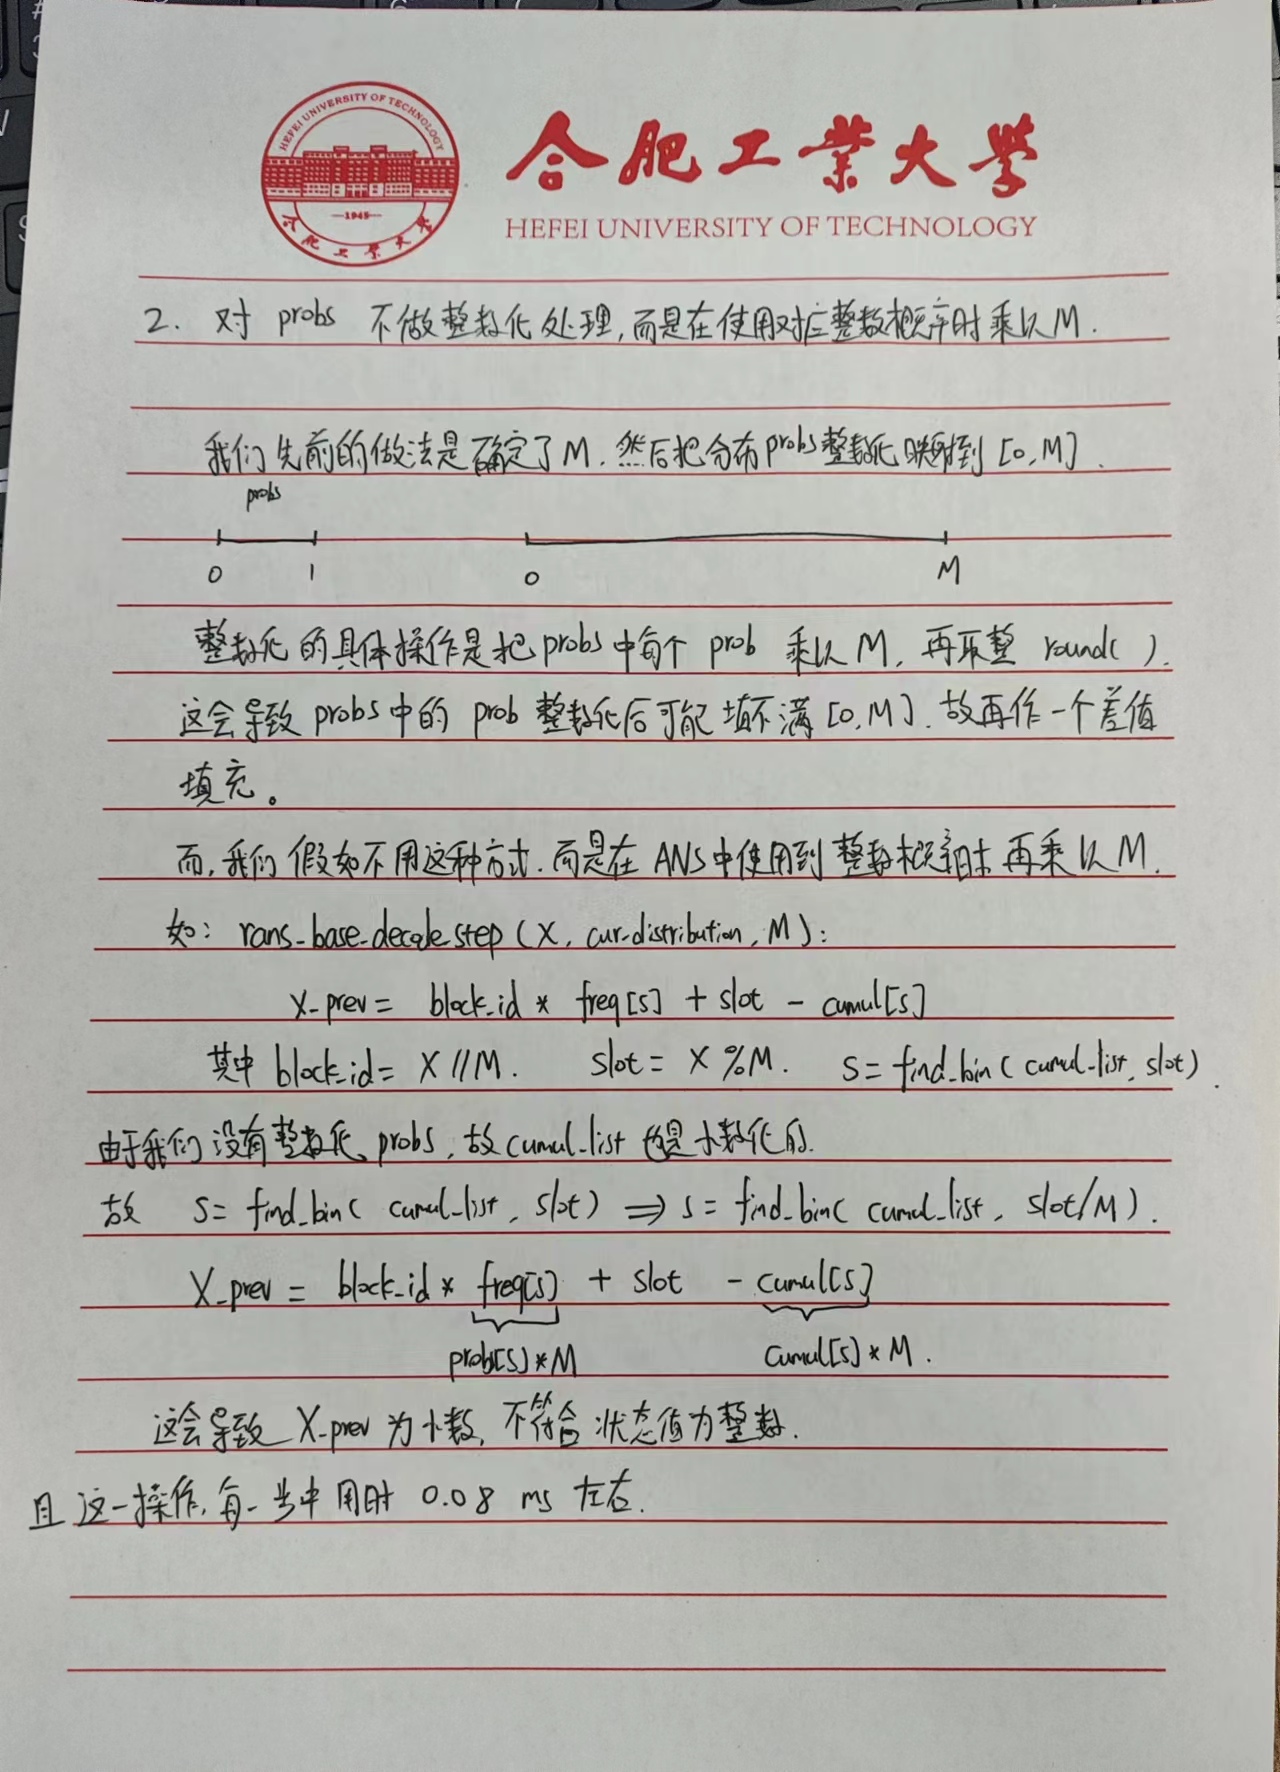 HEFEI UNIVERSITY OF TECHNOLOGY
1945
合肥工业大学
合肥工業大學
HEFEI UNIVERSITY OF TECHNOLOGY
2. 对 probs 不做整数化处理,而是在使用对应整数概率时乘以M.
我们先前的做法是确定了M.然后把分布probs整数化映射到[0,M].
probs
0 1 0 M
整数化的具体操作是把probs中每个 prob 乘以M, 再取整 round( ).
这会导致 probs中的 prob 整数化后可能填不满[0,M].故再作一个差值
填充。
而,我们假如不用这种方式.而是在ANS中使用到整数概率时再乘以M.
如: rans_base_decode_step(X, cur_distribution, M):
X_prev = block_id * freq[s] + slot - cumul[s]
其中 block_id = X//M. slot = X%M. s = find_bin( cumul_list, slot).
由于我们没有整数化 probs,故cumul_list 也是小数化的.
故 s = find_bin( cumul_list, slot) ⟹ s = find_bin( cumul_list, slot/M).
X_prev = block_id * freq[s] + slot - cumul[s]
prob[s]*M cumul[s]*M.
这会导致 X_prev 为小数,不符合状态值为整数.
且这一操作,每一步中用时 0.08 ms 左右.